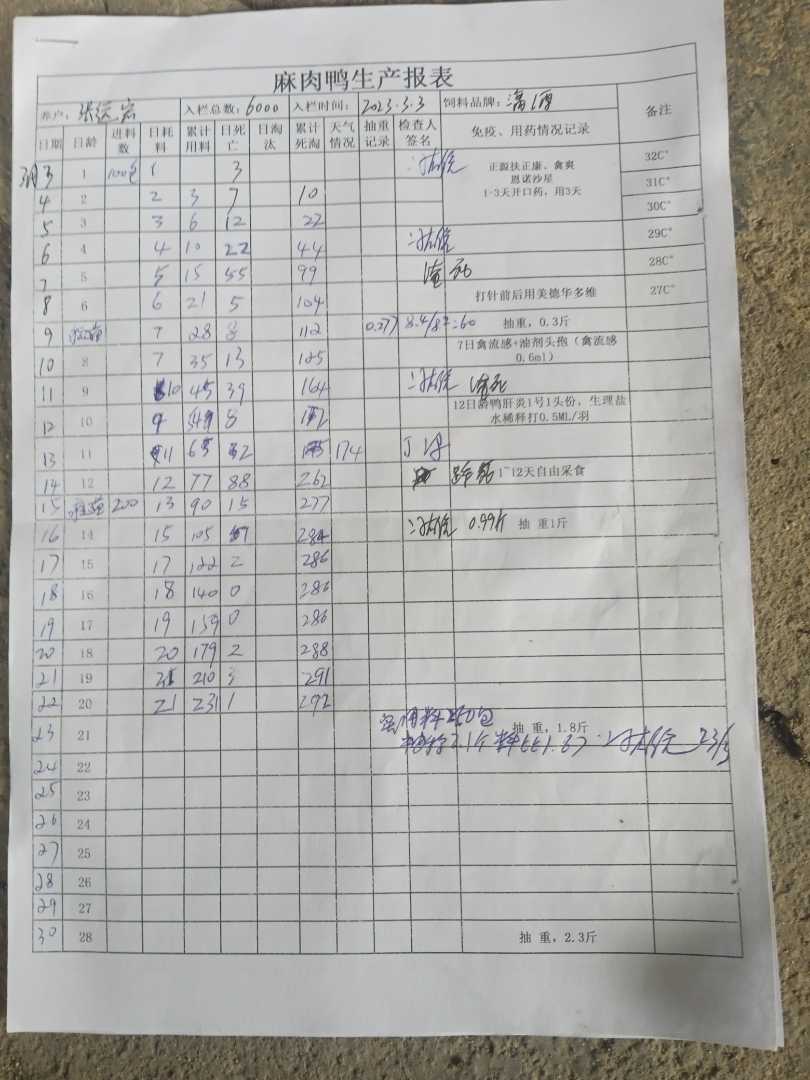 麻肉鸭生产报表
养户： 张 宏 入栏总数：6000 入栏时间：2023.3.3 饲料品牌： 备注
日期 日龄 进料数 日耗料 累计用料 日死亡 日淘汰 累计死淘 天气情况 抽重记录 检查人签名 免疫、用药情况记录
3 1 100包 1 3 正源扶正康、禽爽 32C°
恩诺沙星
1-3天开口药，用3天
4 2 2 3 7 10 31C°
5 3 3 6 12 22 30C°
6 4 4 10 22 44 29C°
7 5 5 15 55 99 28C°
8 6 6 21 5 104 打针前后用美德华多维 27C°
9 7 28 8 112 0.277 8.4/82:60 抽重，0.3斤
10 8 7 35 13 125 7日禽流感+油剂头孢（禽流感0.6ml）
11 9 10 45 39 164 淹死
12 10 9 8 12日龄鸭肝炎1号1头份，生理盐水稀释打0.5ML/羽
13 11 11 65 174
14 12 12 77 88 262 1~12天自由采食
15 200 13 90 15 277
16 14 15 105 7 284 0.99斤 抽 重1斤
17 15 17 122 2 286
18 16 18 140 0 286
19 17 19 159 0 286
20 18 20 179 2 288
21 19 21 210 3 291
22 20 21 231 1 292
23 21 用料250包 抽 重，1.8斤
2.1斤 料比1.67 23/3
24 22
25 23
26 24
27 25
28 26
29 27
30 28 抽 重，2.3斤